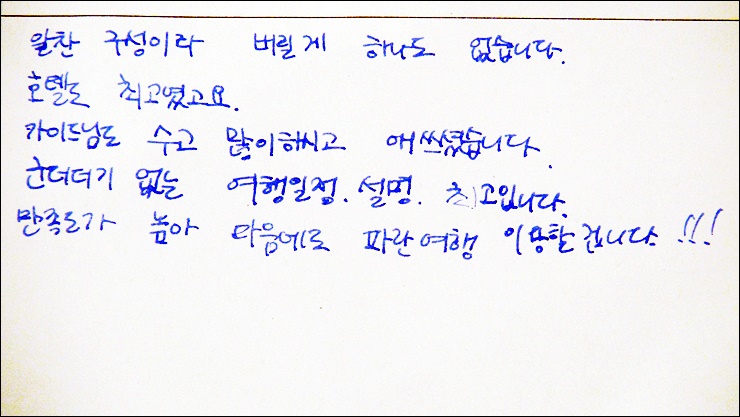 알찬 구성이라 버릴게 하나도 없습니다.
호텔도 최고였고요.
가이드님도 수고 많이하시고 애쓰셨습니다.
군더더기 없는 여행일정. 설명. 최고입니다.
만족도가 높아 다음에도 파란여행 이용할겁니다!!!